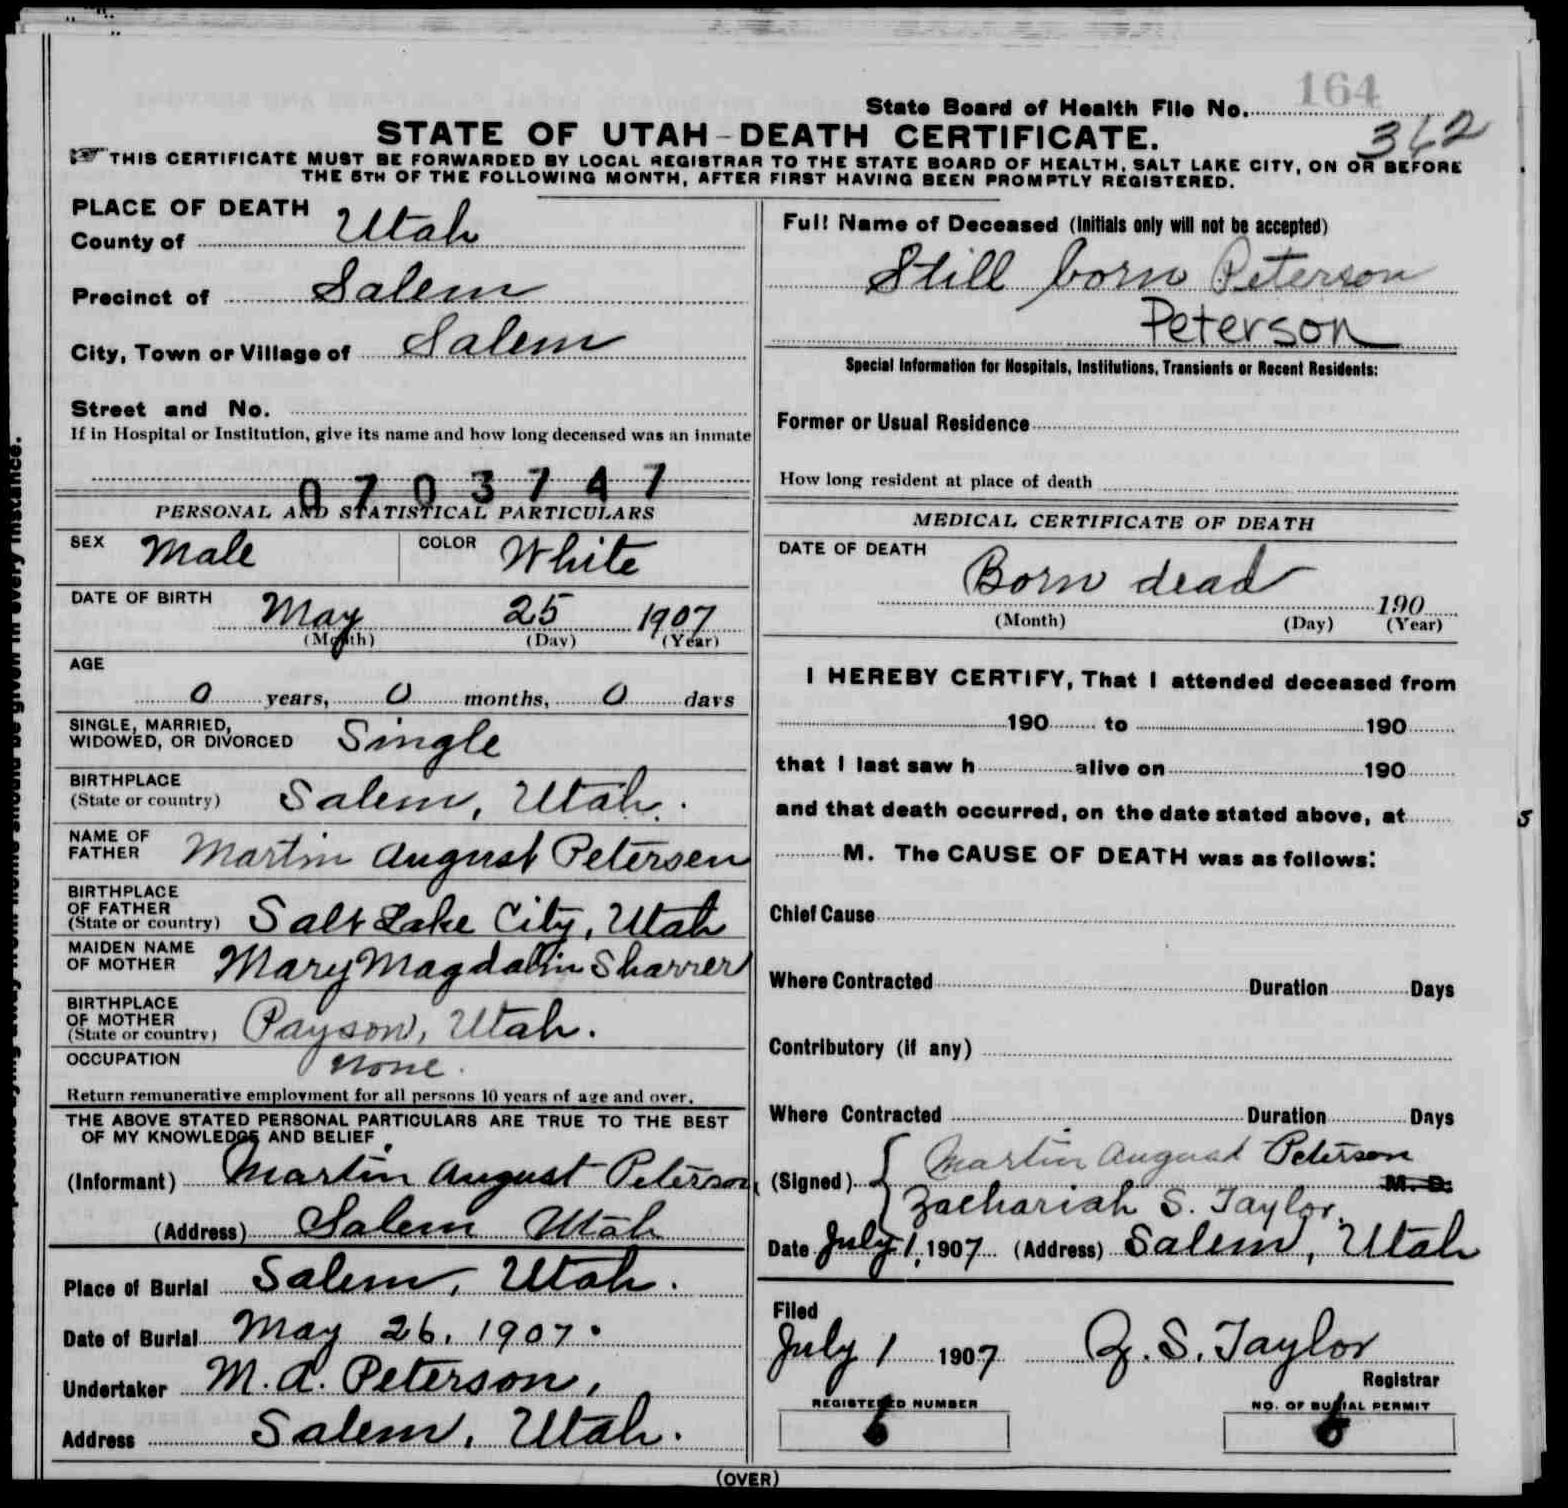 164
State Board of Health File No.
362
STATE OF UTAH-DEATH CERTIFICATE.
THIS CERTIFICATE MUST BE FORWARDED BY LOCAL REGISTRAR TO THE STATE BOARD OF HEALTH, SALT LAKE CITY, ON OR BEFORE
THE 5TH OF THE FOLLOWING MONTH, AFTER FIRST HAVING BEEN PROMPTLY REGISTERED.
PLACE OF DEATH
County of Utah
Precinct of Salem
City, Town or Village of Salem
Street and No.
If in Hospital or Institution, give its name and how long deceased was an inmate
0703747
PERSONAL AND STATISTICAL PARTICULARS
SEX Male COLOR White
DATE OF BIRTH
May 25 1907
(Month) (Day) (Year)
AGE
0 years, 0 months, 0 days
SINGLE, MARRIED,
WIDOWED, OR DIVORCED Single
BIRTHPLACE
(State or country) Salem, Utah.
NAME OF
FATHER Martin August Petersen
BIRTHPLACE
OF FATHER
(State or country) Salt Lake City, Utah
MAIDEN NAME
OF MOTHER Mary Magdalin Sharrer
BIRTHPLACE
OF MOTHER
(State or country) Payson, Utah.
OCCUPATION None.
Return remunerative employment for all persons 10 years of age and over.
THE ABOVE STATED PERSONAL PARTICULARS ARE TRUE TO THE BEST
OF MY KNOWLEDGE AND BELIEF.
(Informant) Martin August Peterson
(Address) Salem Utah
Place of Burial Salem, Utah.
Date of Burial May 26, 1907.
Undertaker M. A. Peterson,
Address Salem, Utah.
Full Name of Deceased (Initials only will not be accepted)
Still born Peterson
Peterson
Special Information for Hospitals, Institutions, Transients or Recent Residents:
Former or Usual Residence
How long resident at place of death
MEDICAL CERTIFICATE OF DEATH
DATE OF DEATH
Born dead 190
(Month) (Day) (Year)
I HEREBY CERTIFY, That I attended deceased from
190 to 190
that I last saw h alive on 190
and that death occurred, on the date stated above, at
M. The CAUSE OF DEATH was as follows:
Chief Cause
Where Contracted Duration Days
Contributory (if any)
Where Contracted Duration Days
Martin August Peterson
(Signed) M. D.
Zachariah S. Taylor.
Date July 1, 1907 (Address) Salem, Utah
Filed
July 1 1907 Z. S. Taylor
Registrar
REGISTERED NUMBER
6
NO. OF BURIAL PERMIT
6
(OVER)